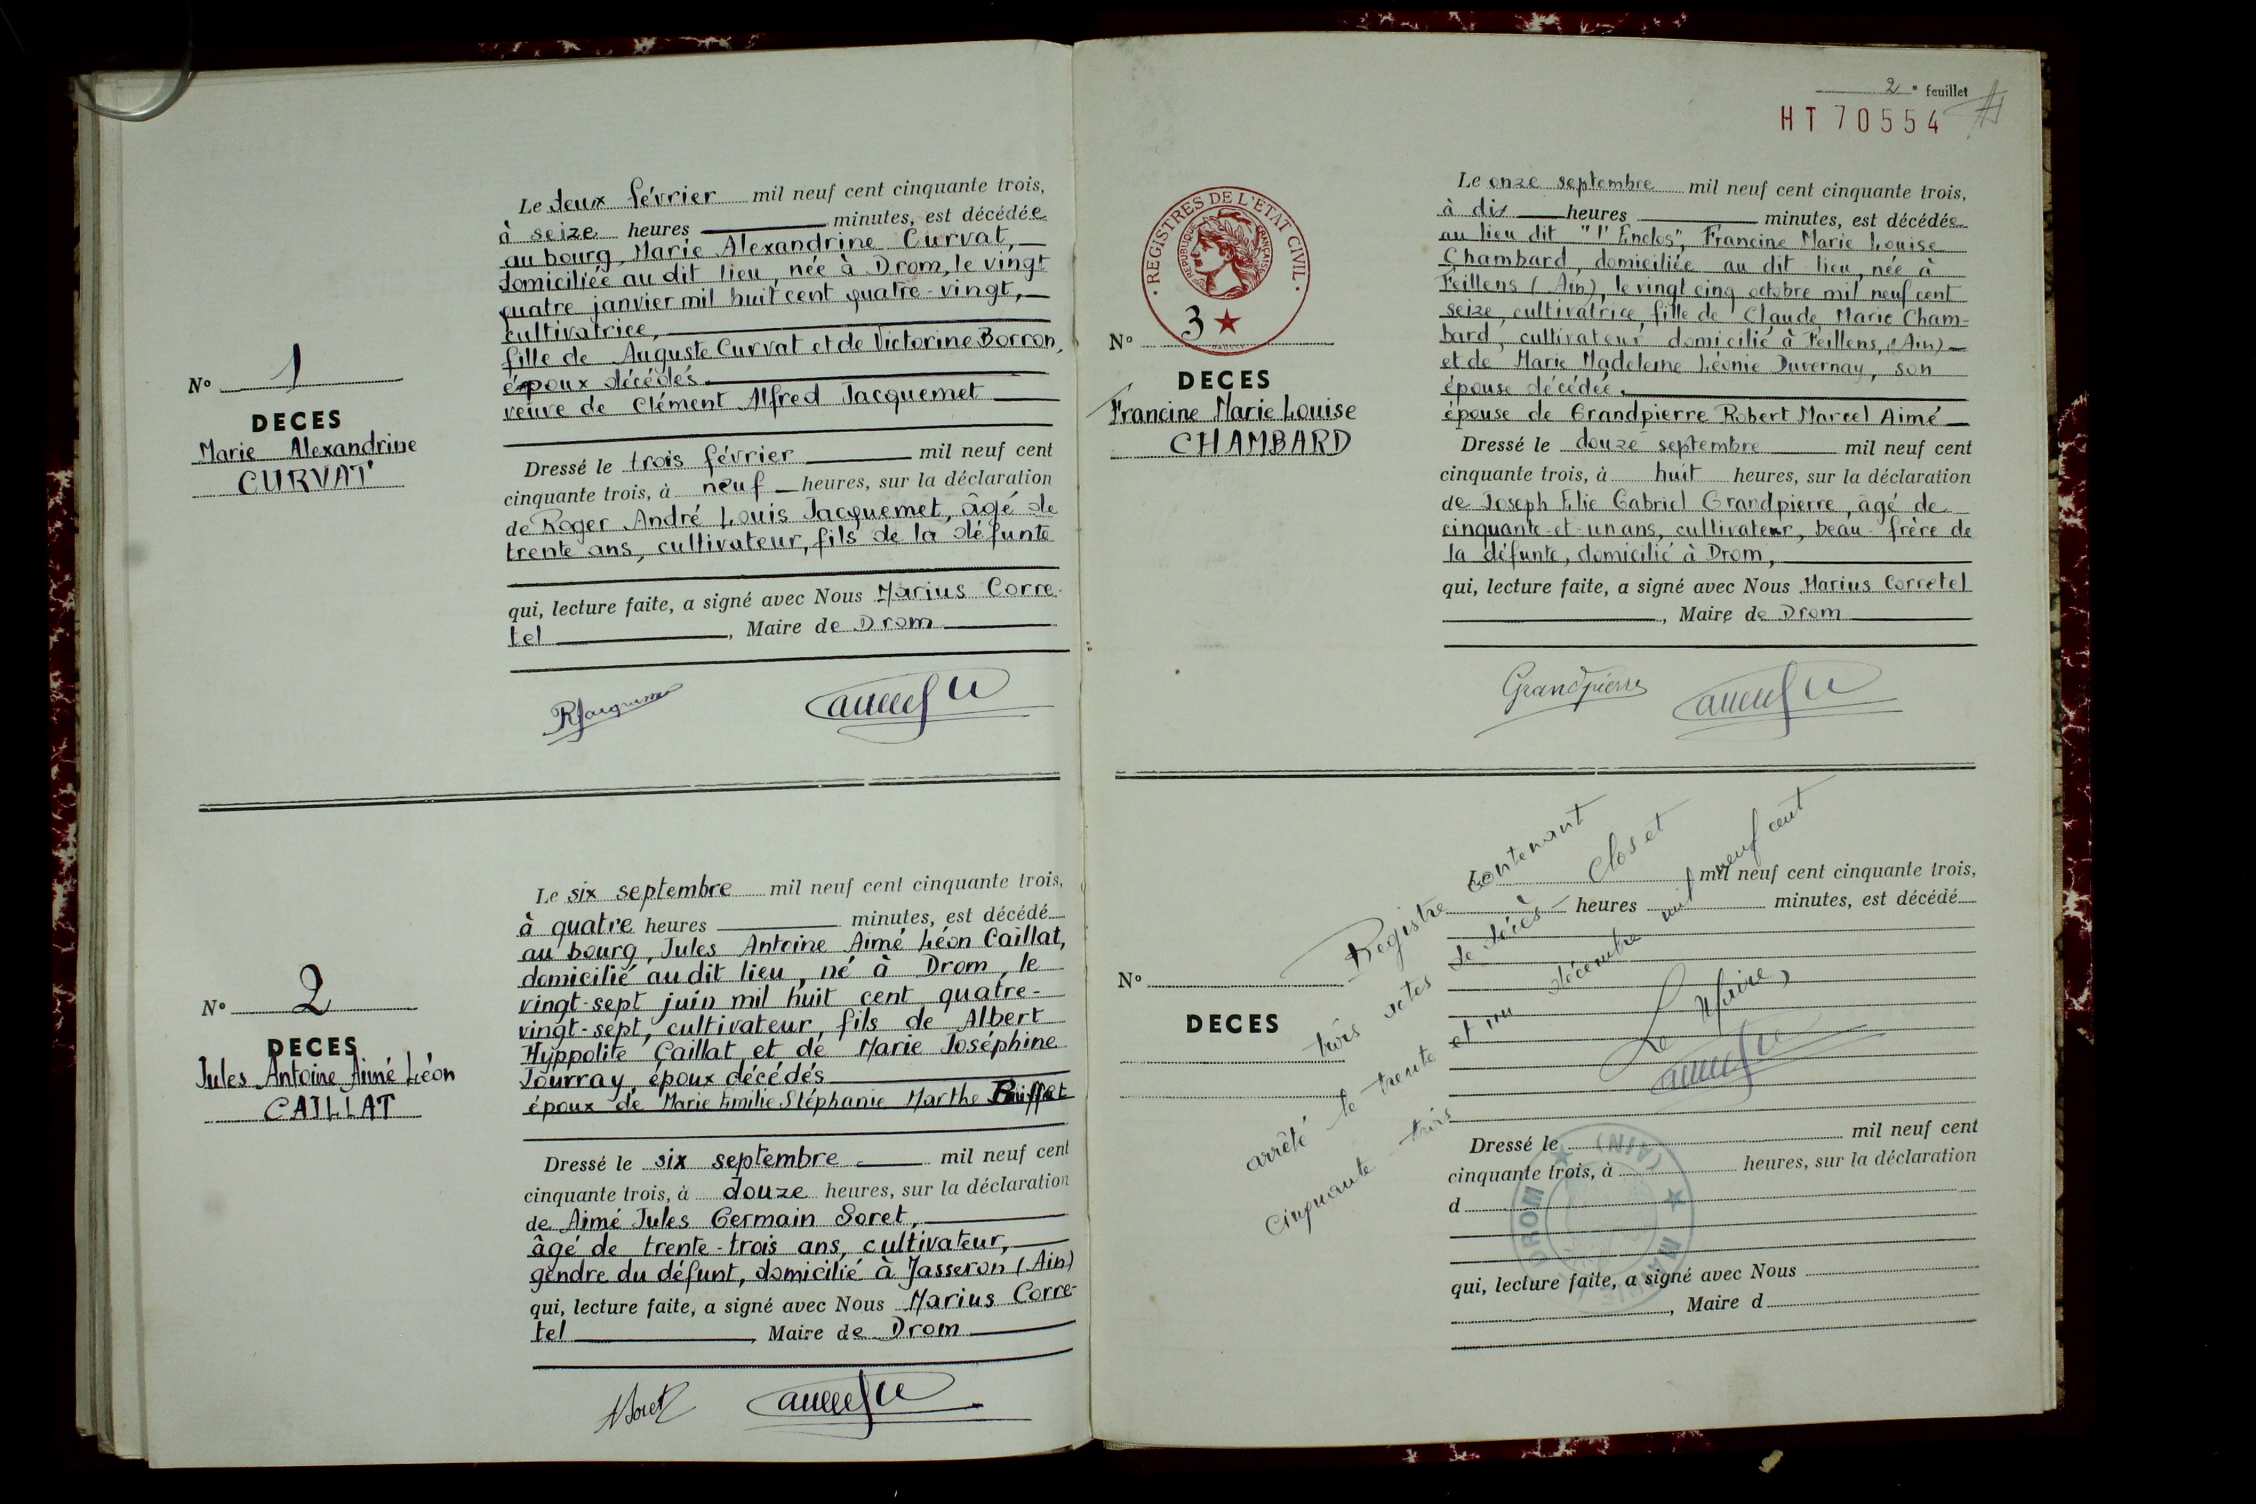 N° 1
DECES
Marie Alexandrine
CURVAT
Le deux février mil neuf cent cinquante trois,
à seize heures minutes, est décédée
au bourg, Marie Alexandrine Curvat,
domiciliée au dit lieu, née à Drom, le vingt
quatre janvier mil huit cent quatre-vingt,
cultivatrice,
fille de Auguste Curvat et de Victorine Borron,
époux décédés
veuve de Clément Alfred Jacquemet
Dressé le trois février mil neuf cent
cinquante trois, à neuf heures, sur la déclaration
de Roger André Louis Jacquemet, âgé de
trente ans, cultivateur, fils de la défunte
qui, lecture faite, a signé avec Nous Marius Corre-
tel, Maire de Drom
N° 2
DECES
Jules Antoine Aimé Léon
CAILLAT
Le six septembre mil neuf cent cinquante trois,
à quatre heures minutes, est décédé
au bourg, Jules Antoine Aimé Léon Caillat,
domicilié au dit lieu, né à Drom, le
vingt-sept juin mil huit cent quatre-
vingt-sept, cultivateur, fils de Albert
Hyppolite Caillat et de Marie Joséphine
Jourray, époux décédés
époux de Marie Emilie Stéphanie Marthe Buffet
Dressé le six septembre mil neuf cent
cinquante trois, à douze heures, sur la déclaration
de Aimé Jules Germain Soret,
âgé de trente-trois ans, cultivateur,
gendre du défunt, domicilié à Jasseron (Ain)
qui, lecture faite, a signé avec Nous Marius Corre-
tel, Maire de Drom
ASoret
2e feuillet
HT 70554
REGISTRES DE L'ETAT CIVIL
REPUBLIQUE FRANÇAISE
N° 3
DECES
Francine Marie Louise
CHAMBARD
Le onze septembre mil neuf cent cinquante trois,
à dix heures minutes, est décédée
au lieu dit "l'Enclos", Francine Marie Louise
Chambard, domiciliée au dit lieu, née à
Feillens (Ain), le vingt cinq octobre mil neuf cent
seize, cultivatrice, fille de Claude Marie Cham-
bard, cultivateur domicilié à Feillens, (Ain)
et de Marie Madeleine Léonie Duvernay, son
épouse décédée.
épouse de Grandpierre Robert Marcel Aimé
Dressé le douze septembre mil neuf cent
cinquante trois, à huit heures, sur la déclaration
de Joseph Elie Gabriel Grandpierre, âgé de
cinquante-et-un ans, cultivateur, beau-frère de
la défunte, domicilié à Drom,
qui, lecture faite, a signé avec Nous Marius Corretel
, Maire de Drom
Grandpierre
N°
DECES
Le mil neuf cent cinquante trois,
heures minutes, est décédé
Dressé le mil neuf cent
cinquante trois, à heures, sur la déclaration
d
qui, lecture faite, a signé avec Nous
, Maire d
Registre contenant
trois actes de décès - clos et
arrêté le trente et un décembre mil neuf cent
cinquante trois
Le Maire,
MAIRIE DROM (AIN)